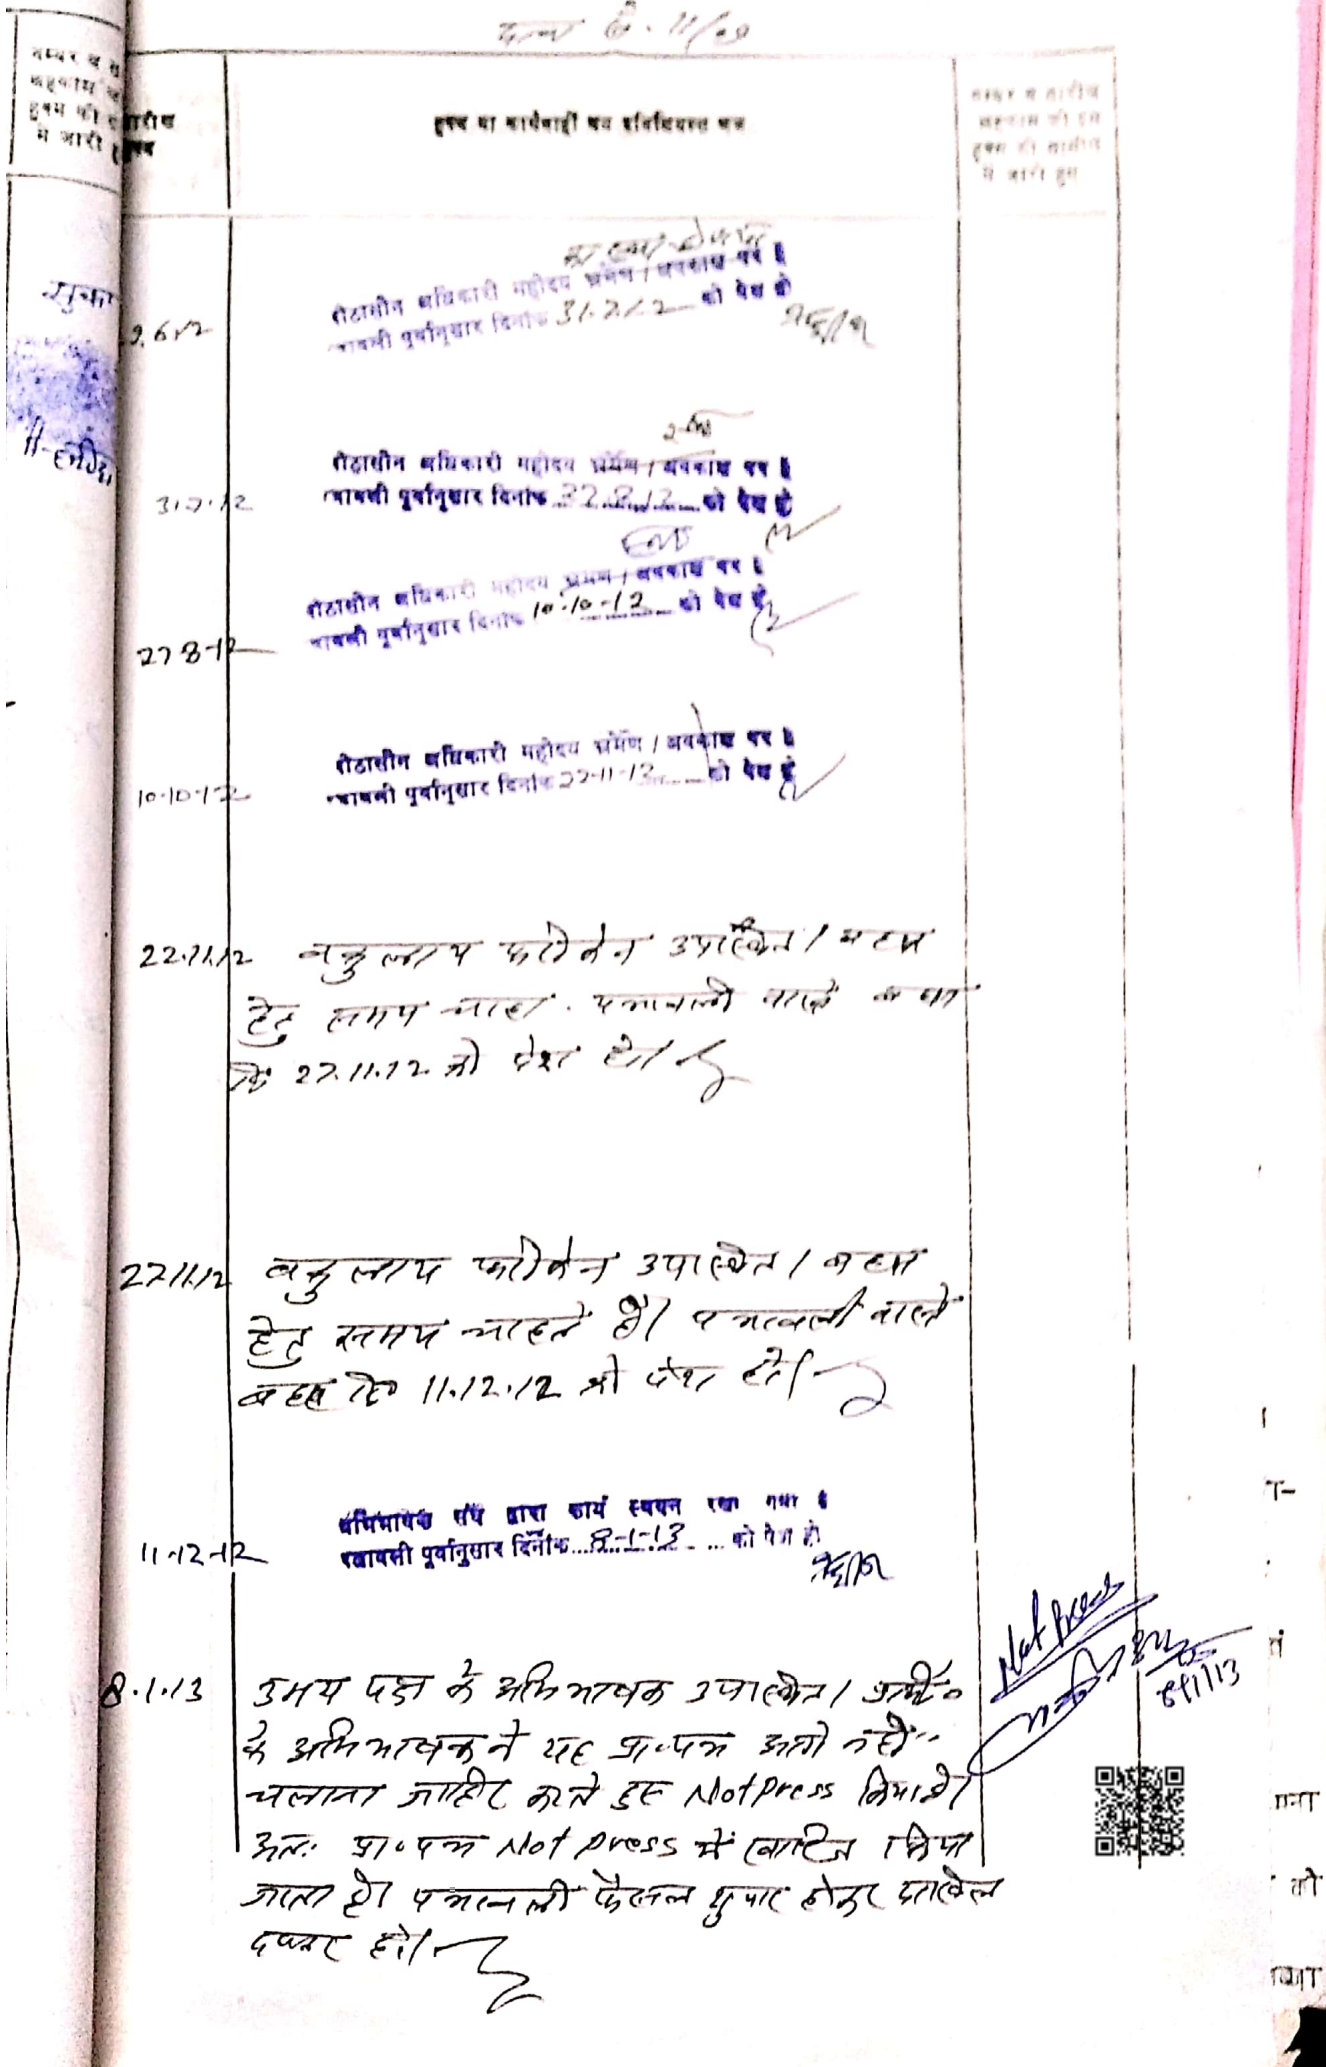 6.11/09
नम्बर व
हुक्म की तारीख
में जारी
हुक्म या कार्यवाही मय इनिशियल्स जज
नम्बर व तारीख
अहकाम जो इस
हुक्म की तामील
में जारी हुए
9.6.12
पीठासीन अधिकारी महोदय भ्रमण / अवकाश पर है
पत्रावली पूर्वानुसार दिनांक 31.7.12 को पेश हो
31.7.12
पीठासीन अधिकारी महोदय भ्रमण / अवकाश पर है
पत्रावली पूर्वानुसार दिनांक 27.8.12 को पेश हो
27-8-12
पीठासीन अधिकारी महोदय भ्रमण / अवकाश पर है
पत्रावली पूर्वानुसार दिनांक 10-10-12 को पेश हो
10-10-12
पीठासीन अधिकारी महोदय भ्रमण / अवकाश पर है
पत्रावली पूर्वानुसार दिनांक 22-11-12 को पेश हो
22.11.12 वकुलाय फरीकेन उपस्थित। बहस
हेतु समय चाहा. पत्रावली वास्ते बहस
दि 27.11.12 को पेश हो।
27.11.12 वकुलाय फरीकेन उपस्थित। बहस
हेतु समय चाहते है। पत्रावली वास्ते
बहस दि० 11.12.12 को पेश हो।
11-12-12
अभिभाषक संघ द्वारा कार्य स्थगन रखा गया है
पत्रावली पूर्वानुसार दिनांक 8-1-13 को पेश हो
Not Press
8/1/13
8.1.13 उभय पक्ष के अभिभाषक उपस्थित। प्रार्थी
के अभिभाषक ने यह प्रा.पत्र आगे नहीं
चलाना जाहिर करते हुए Not Press किया है।
अतः प्रा.पत्र Not Press में खारिज किया
जाता है। पत्रावली फैसल शुमार होकर दाखिल
दफ्तर हो।